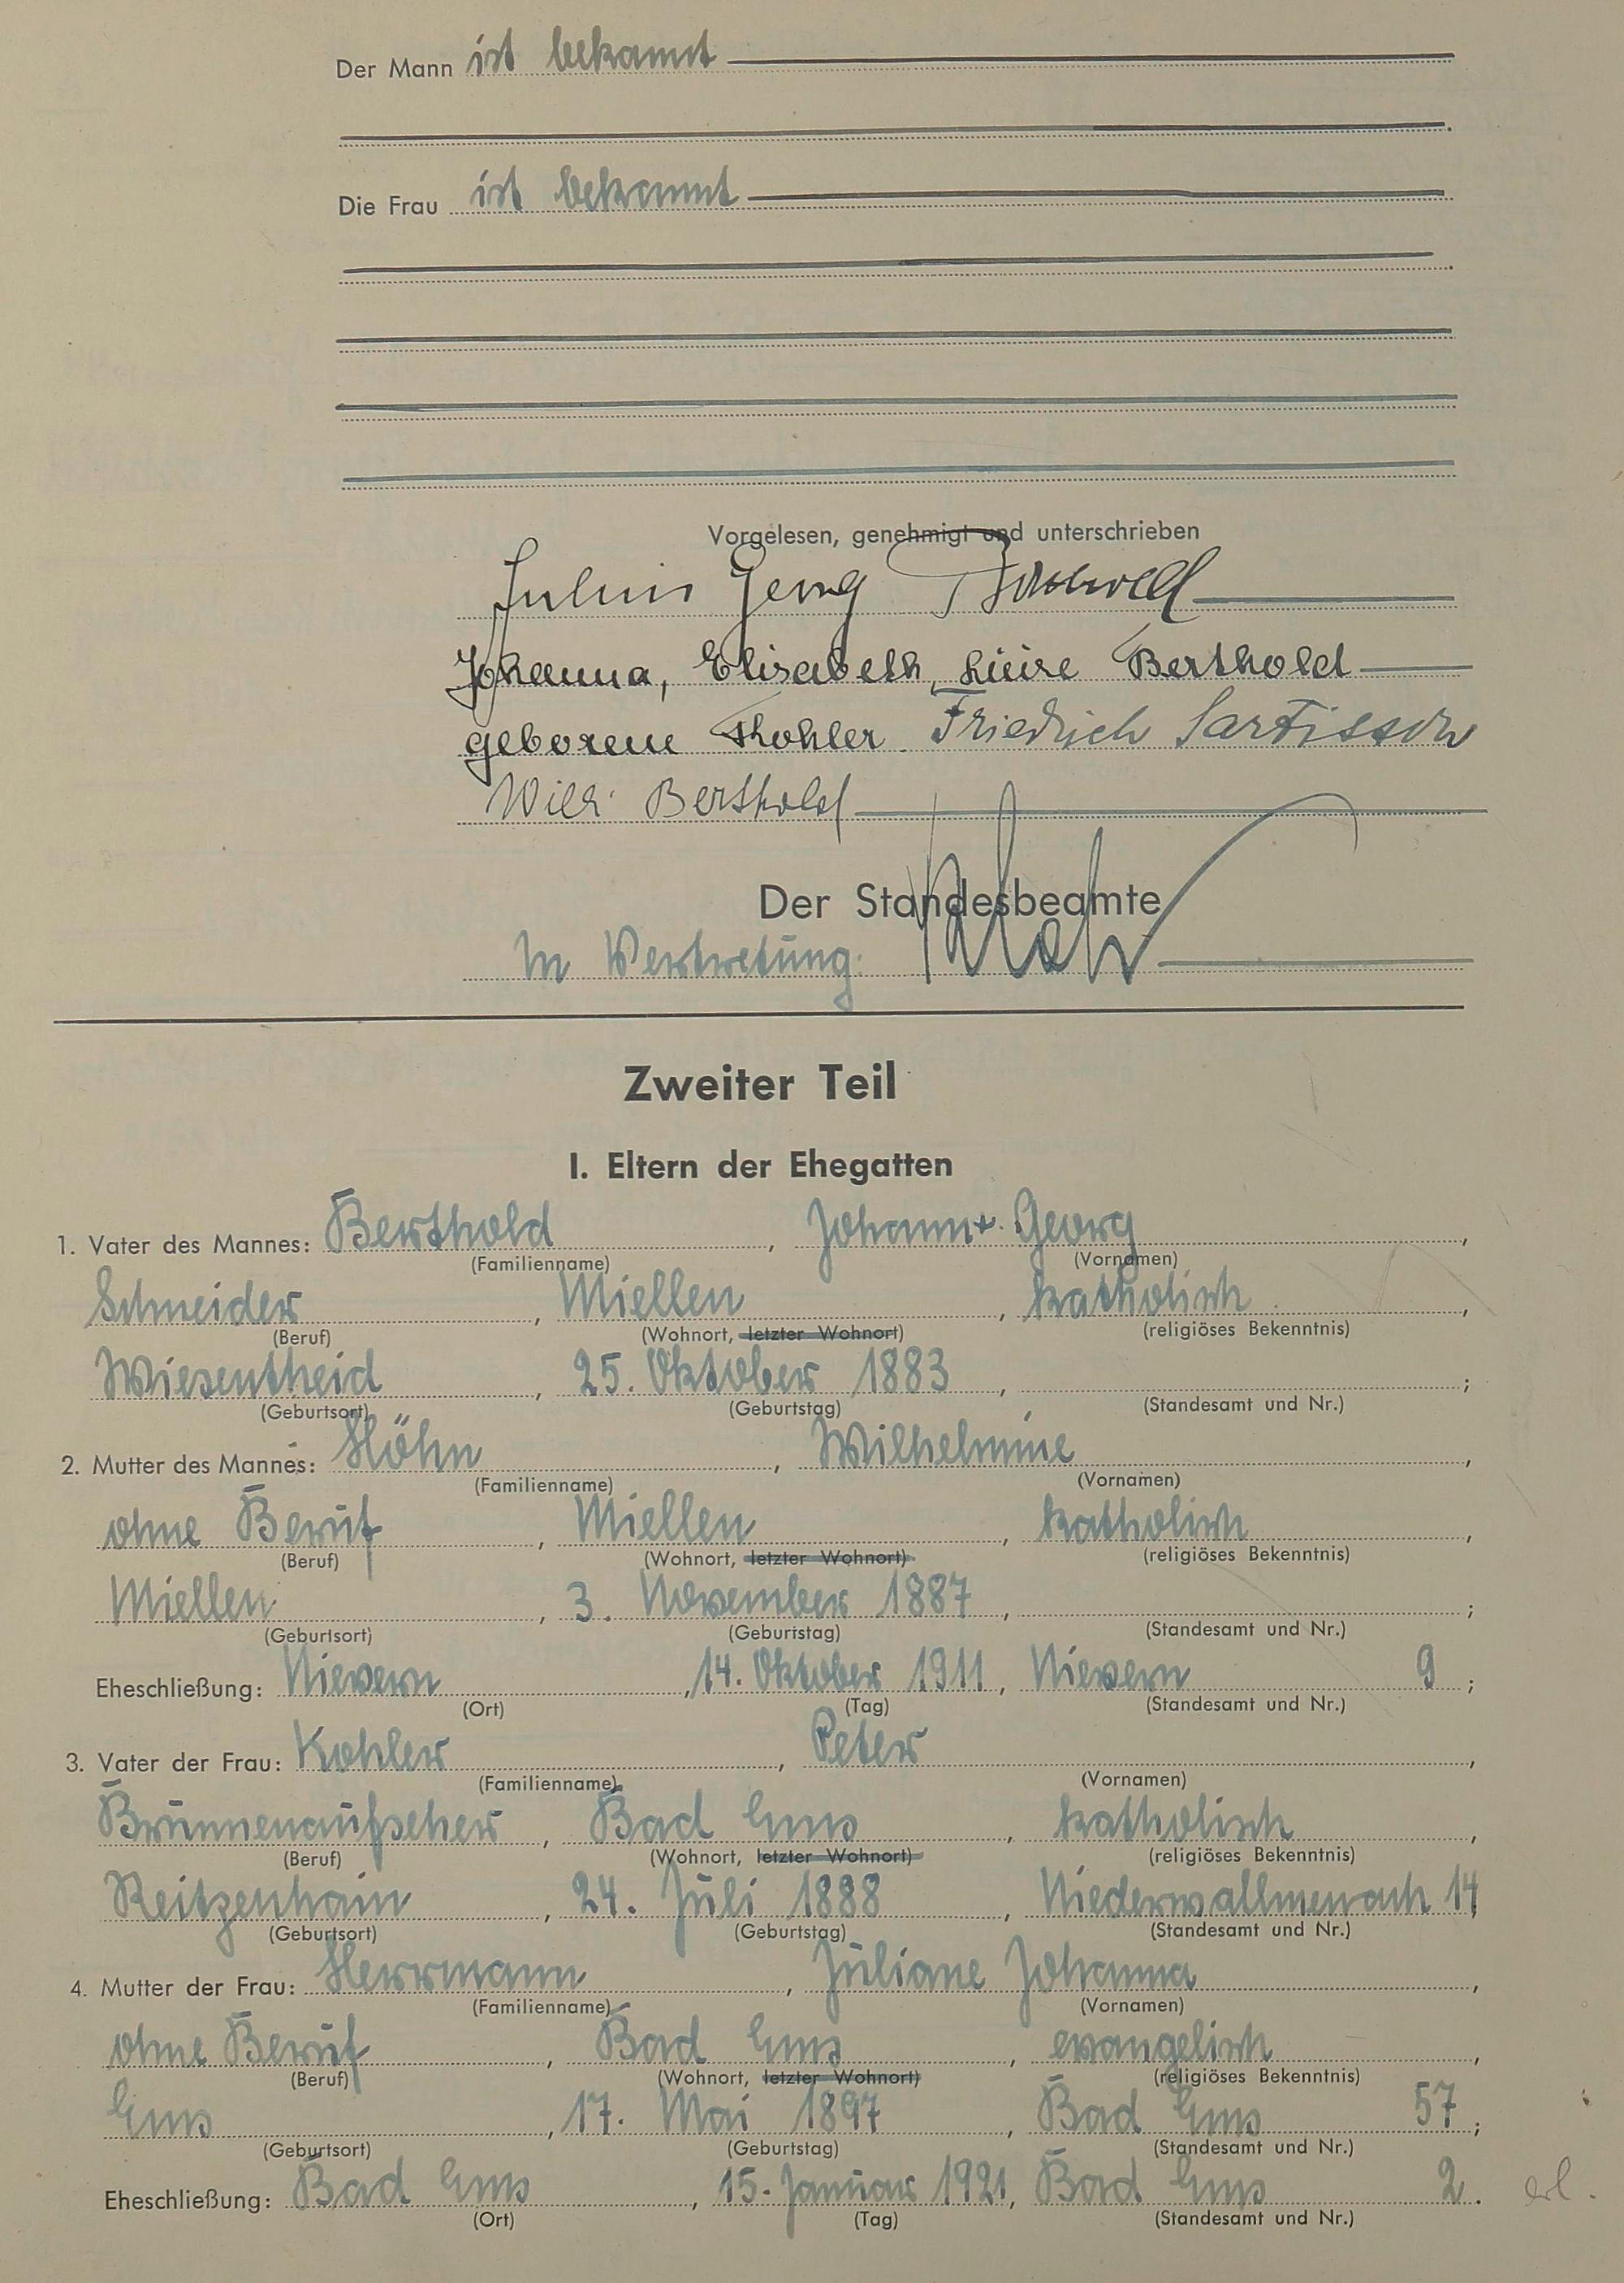 Der Mann ist bekannt
Die Frau ist bekannt
Vorgelesen, genehmigt und unterschrieben
Julius Georg Berthold
Johanna, Elisabeth, Luise Berthold
geborene Kohler Friedrich Sartisson
Willi Berthold
Der Standesbeamte
In Vertretung:
Zweiter Teil
I. Eltern der Ehegatten
1. Vater des Mannes: Berthold, Johann Georg,
(Familienname) (Vornamen)
Schneider, Miellen, katholisch,
(Beruf) (Wohnort, letzter Wohnort) (religiöses Bekenntnis)
Wiesentheid, 25. Oktober 1883, ;
(Geburtsort) (Geburtstag) (Standesamt und Nr.)
2. Mutter des Mannes: Höhn, Wilhelmine,
(Familienname) (Vornamen)
ohne Beruf, Miellen, katholisch,
(Beruf) (Wohnort, letzter Wohnort) (religiöses Bekenntnis)
Miellen, 3. November 1887, ;
(Geburtsort) (Geburtstag) (Standesamt und Nr.)
Eheschließung: Nievern, 14. Oktober 1911, Nievern 9;
(Ort) (Tag) (Standesamt und Nr.)
3. Vater der Frau: Kohler, Peter,
(Familienname) (Vornamen)
Brunnenaufseher, Bad Ems, katholisch,
(Beruf) (Wohnort, letzter Wohnort) (religiöses Bekenntnis)
Reitzenhain, 24. Juli 1888, Niederwallmenach 14
(Geburtsort) (Geburtstag) (Standesamt und Nr.)
4. Mutter der Frau: Herrmann, Juliane Johanna,
(Familienname) (Vornamen)
ohne Beruf, Bad Ems, evangelisch,
(Beruf) (Wohnort, letzter Wohnort) (religiöses Bekenntnis)
Ems, 17. Mai 1897, Bad Ems 57;
(Geburtsort) (Geburtstag) (Standesamt und Nr.)
Eheschließung: Bad Ems, 15. Januar 1921, Bad Ems 2. erl.
(Ort) (Tag) (Standesamt und Nr.)